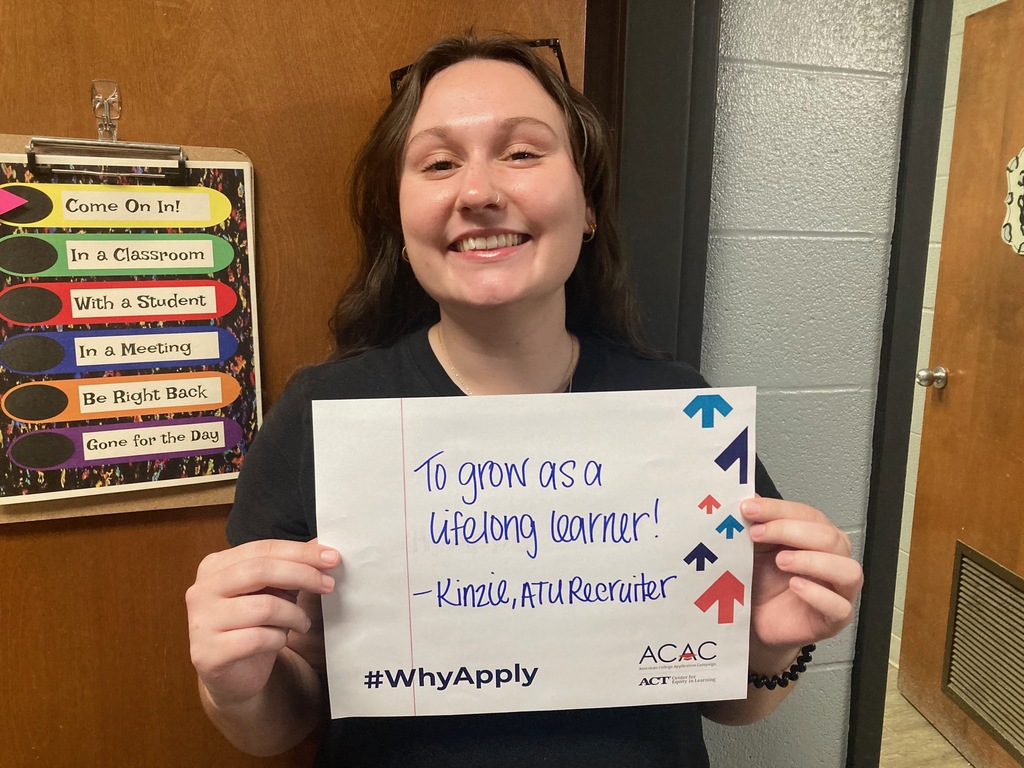 Come On In!
In a Classroom
With a Student
In a Meeting
Be Right Back
Gone for the Day
To grow as a
lifelong learner!
-Kinzie, ATU Recruiter
#WhyApply
ACAC
American College Application Campaign
ACT Center for
Equity in Learning